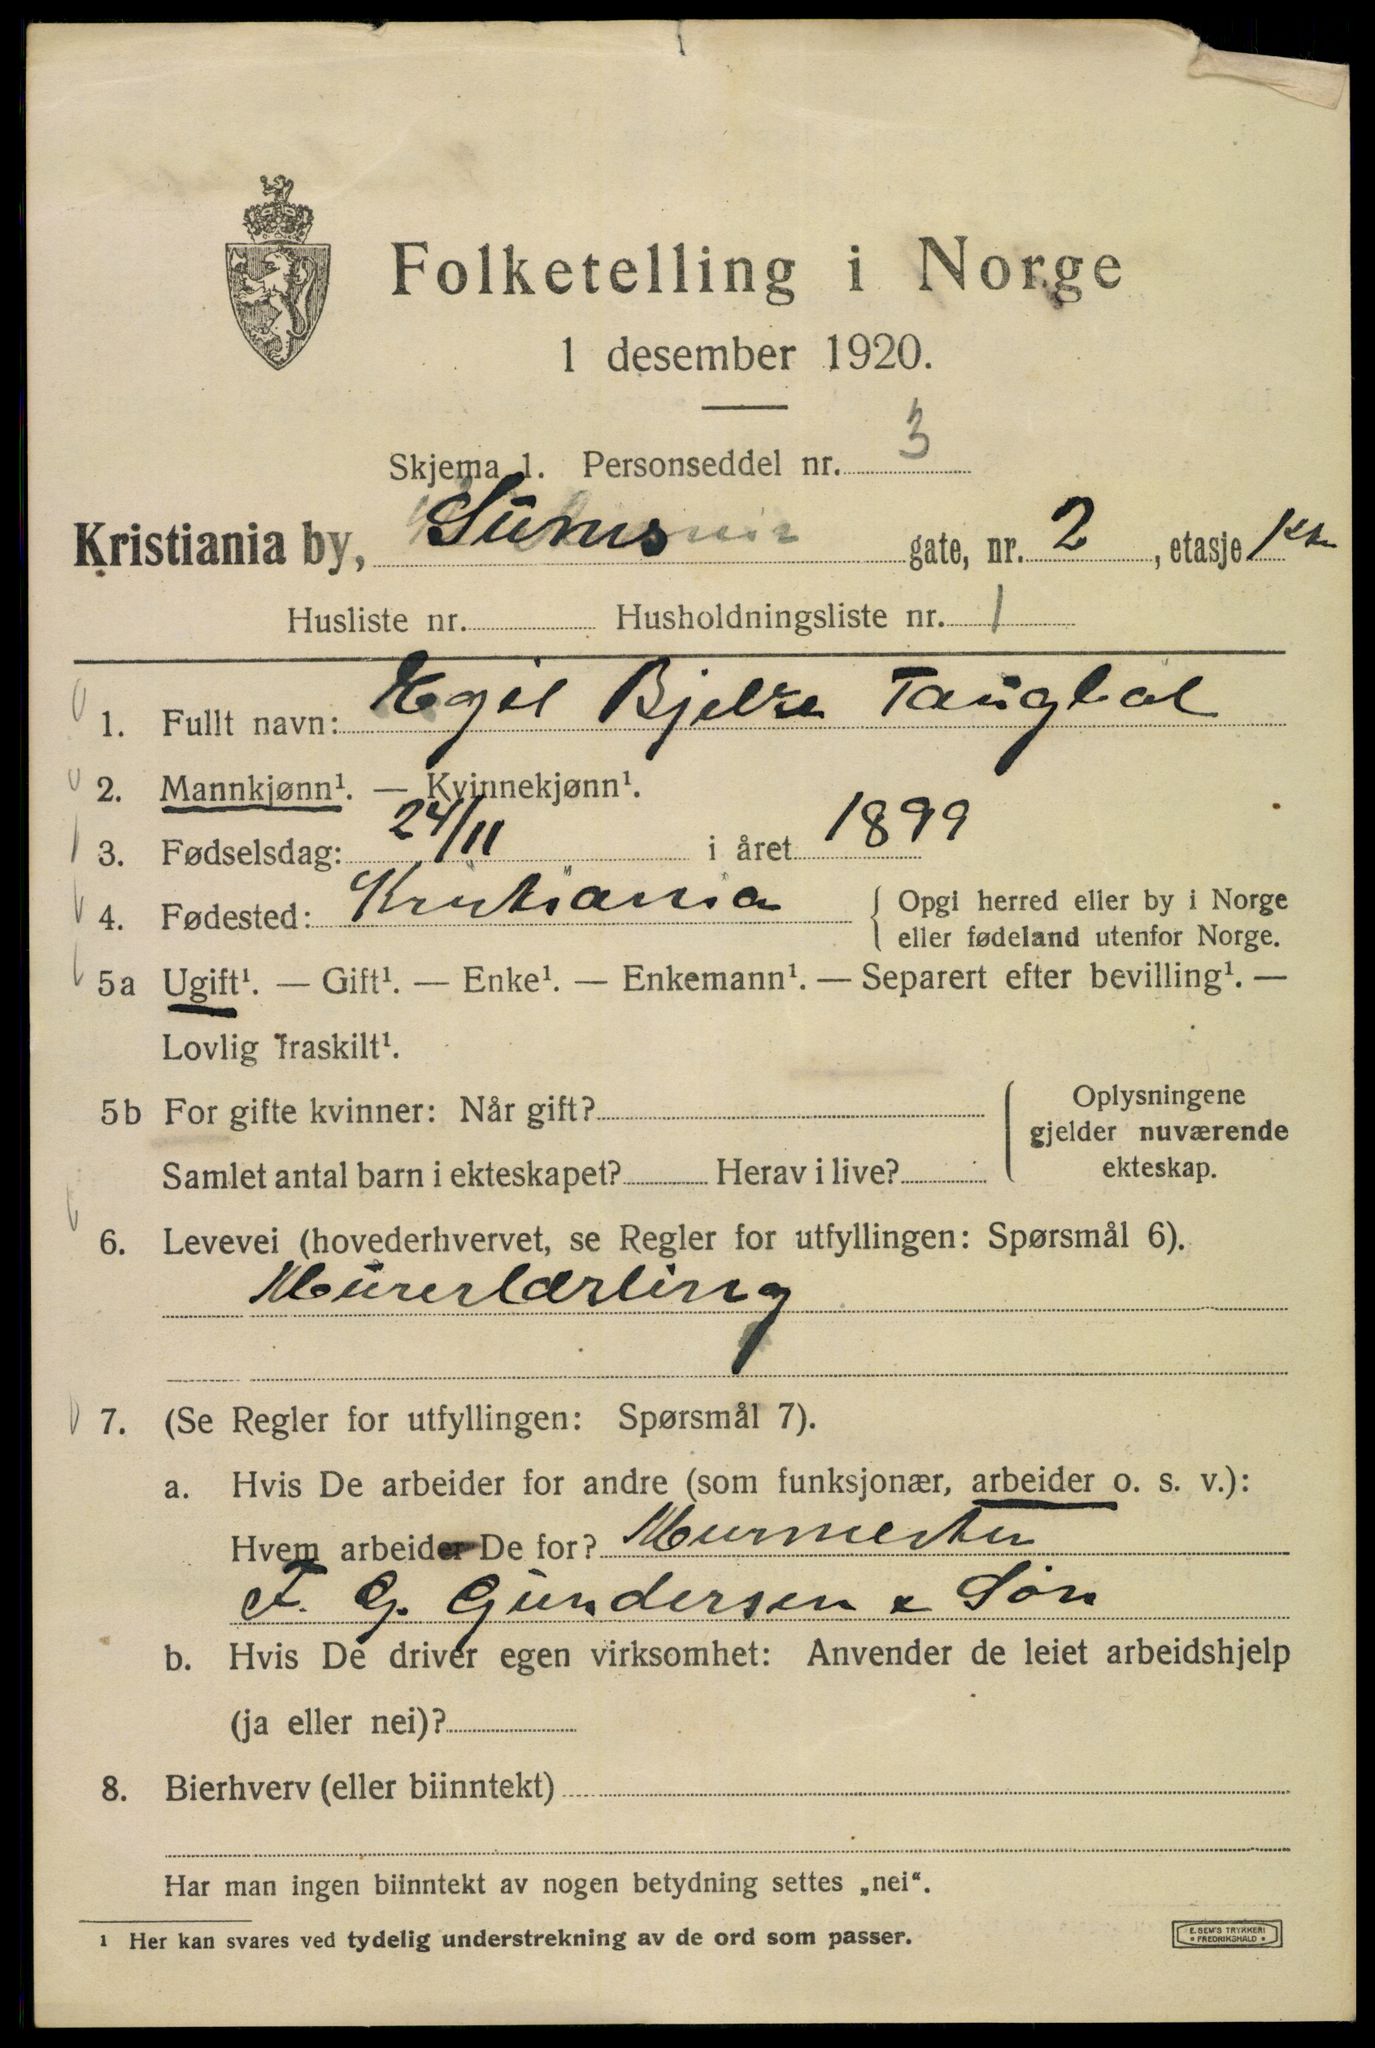 Folketelling i Norge
1 desember 1920.
Skjema 1. Personseddel nr. 3
Kristiania by, Sums gate, nr. 2, etasje 1
Husliste nr. Husholdningsliste nr. 1
1. Fullt navn: Egil Bjelke Taugbøl
2. Mannkjønn¹. — Kvinnekjønn¹.
3. Fødselsdag: 24/11 i året 1899
4. Fødested: Kristiania { Opgi herred eller by i Norge
eller fødeland utenfor Norge.
5a Ugift¹. — Gift¹. — Enke¹. — Enkemann¹. — Separert efter bevilling¹. —
Lovlig fraskilt¹.
5b For gifte kvinner: Når gift?
Samlet antal barn i ekteskapet? Herav i live?
Oplysningene
gjelder nuværende
ekteskap.
6. Levevei (hovederhvervet, se Regler for utfyllingen: Spørsmål 6).
Murerlærling
7. (Se Regler for utfyllingen: Spørsmål 7).
a. Hvis De arbeider for andre (som funksjonær, arbeider o. s. v.):
Hvem arbeider De for? Murmester
F. G. Gundersen & Søn
b. Hvis De driver egen virksomhet: Anvender de leiet arbeidshjelp
(ja eller nei)?
8. Bierhverv (eller biinntekt)
Har man ingen biinntekt av nogen betydning settes „nei“.
¹ Her kan svares ved tydelig understrekning av de ord som passer.
E. SEM'S TRYKKERI
• FREDRIKSHALD •